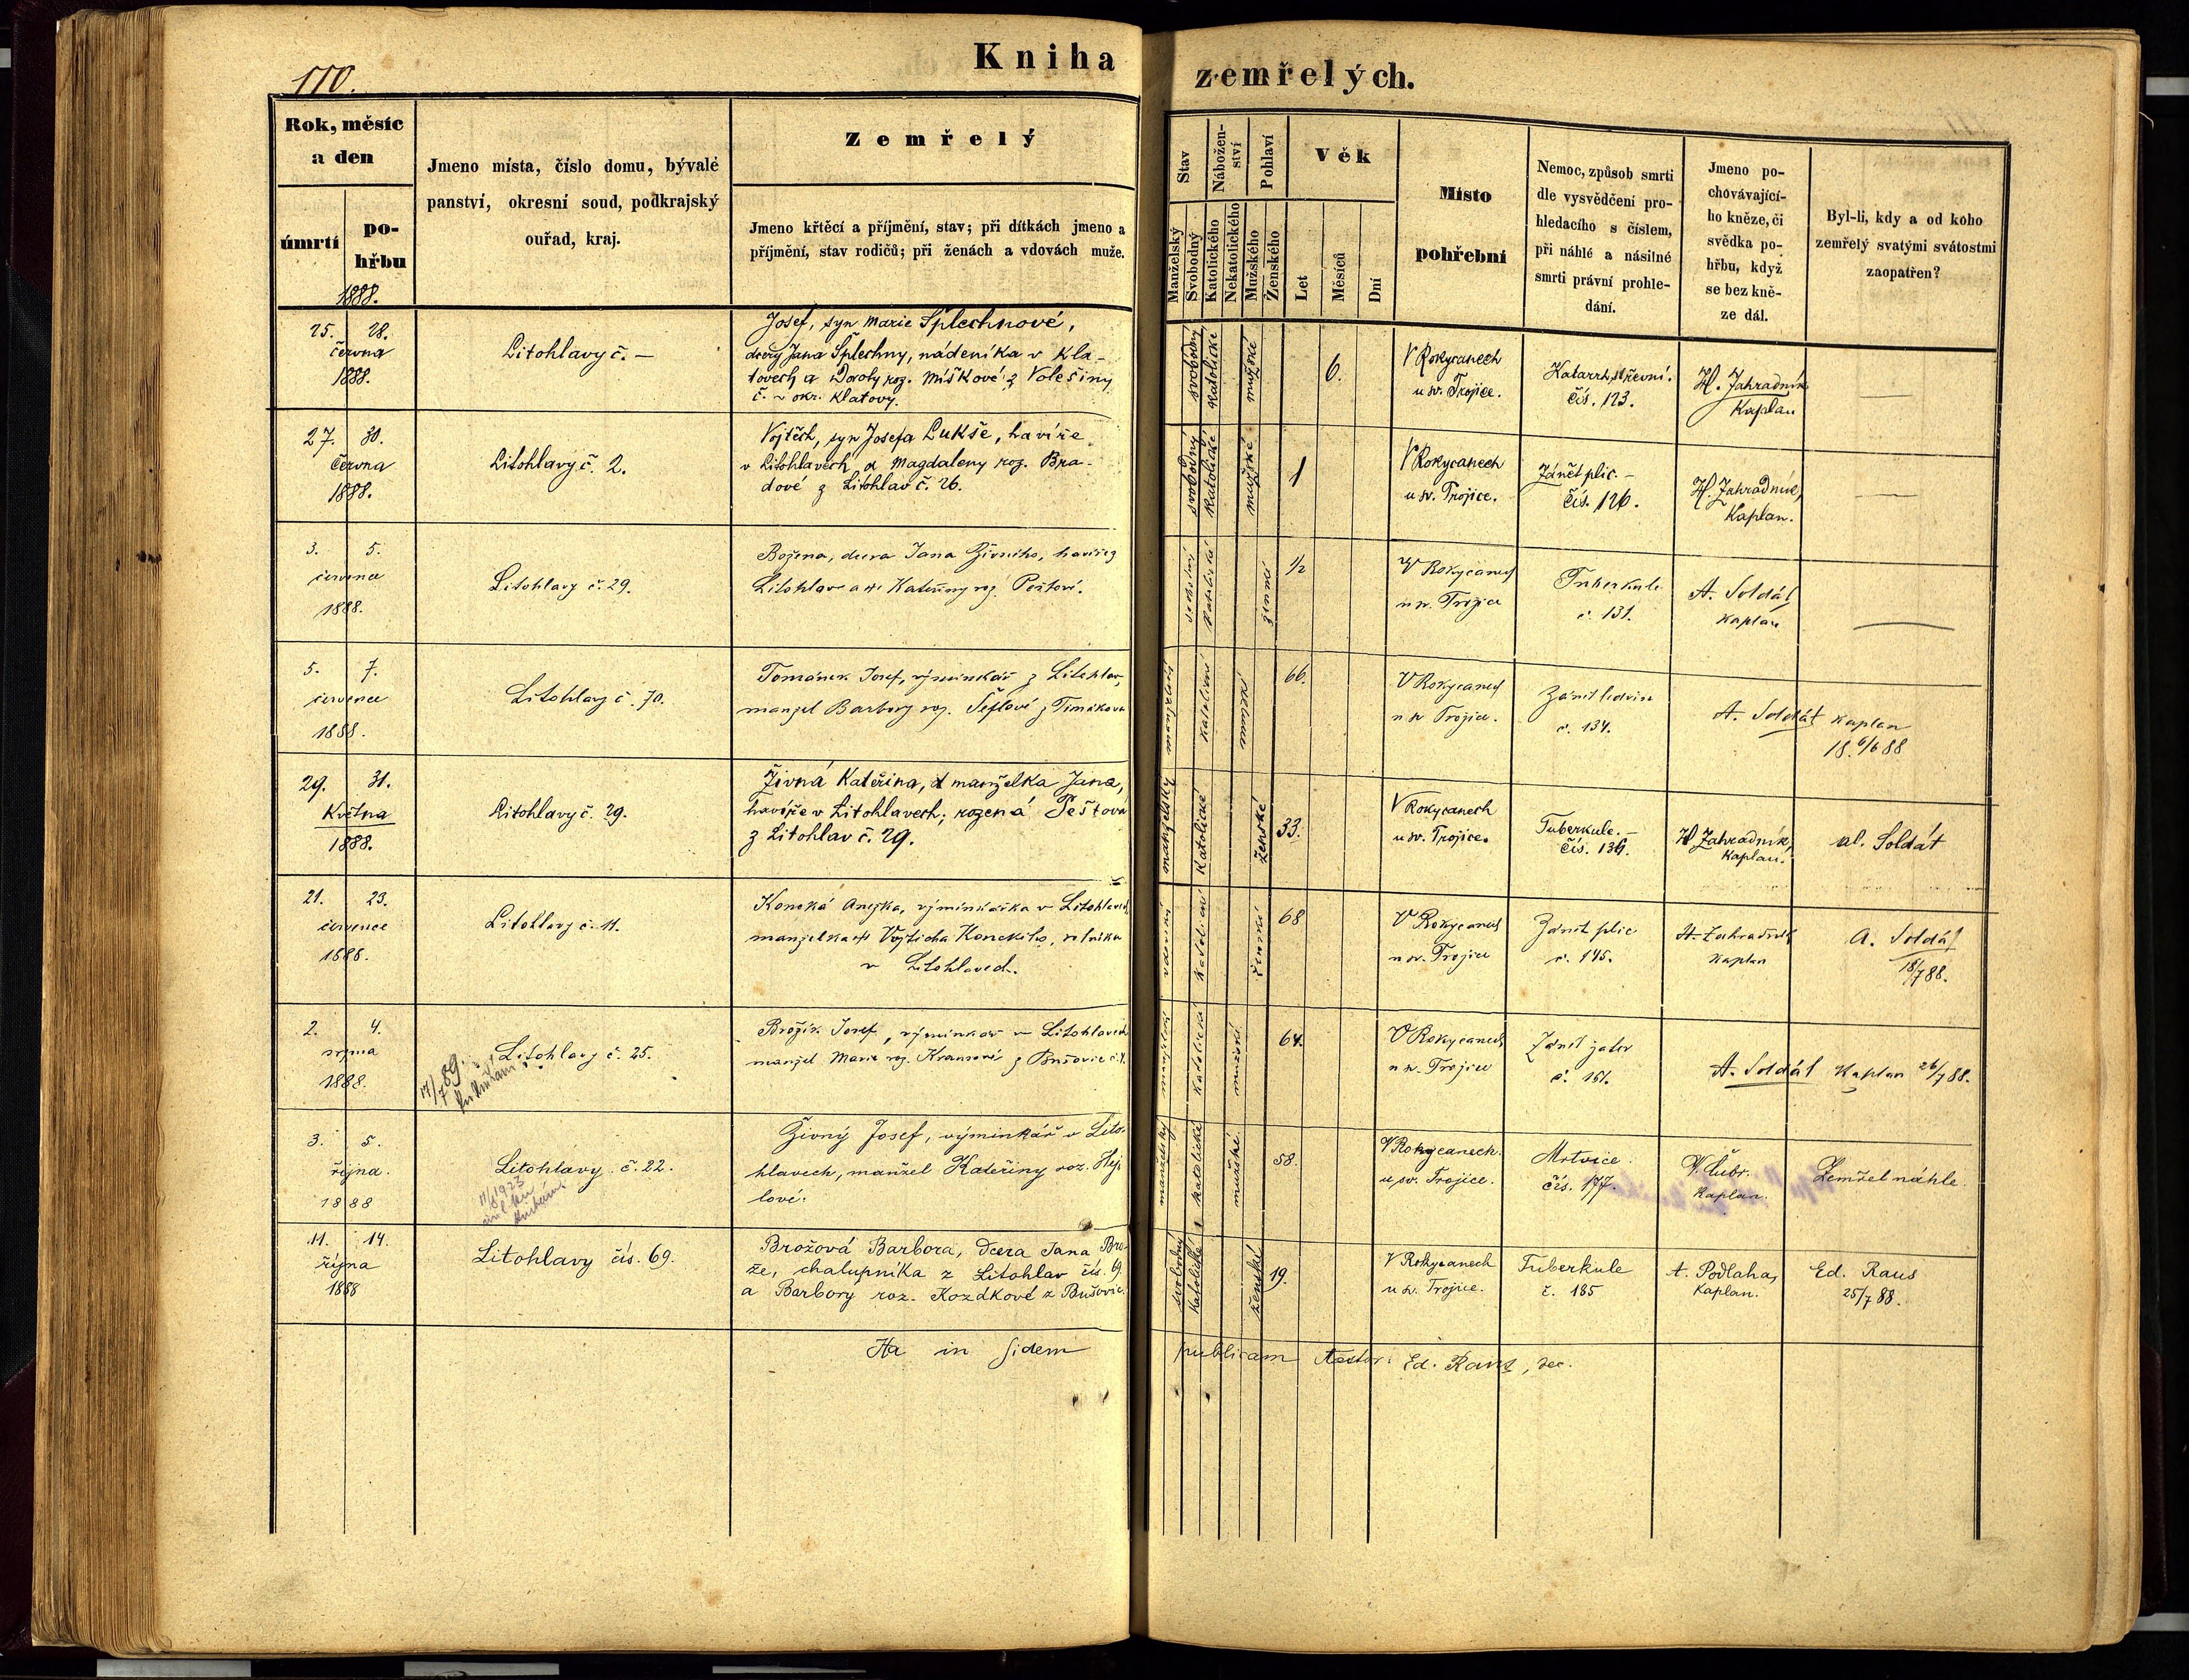 110.
Kniha zemřelých.
Rok, měsíc
a den
úmrtí
po-
hřbu
1888.
Jmeno místa, číslo domu, bývalé
panství, okresní soud, podkrajský
ouřad, kraj.
Zemřelý
Jmeno křtěcí a příjmění, stav; při dítkách jmeno a
příjmění, stav rodičů; při ženách a vdovách muže.
Stav
Manželský
Svobodný
Nábožen-
ství
Katolického
Nekatolického
Pohlaví
Mužského
Ženského
Věk
Let
Měsíců
Dní
Místo
pohřební
Nemoc, způsob smrti
dle vysvědčení pro-
hledacího s číslem,
při náhlé a násilné
smrti právní prohle-
dání.
Jmeno po-
chovávající-
ho kněze, či
svědka po-
hřbu, když
se bez kně-
ze dál.
Byl-li, kdy a od koho
zemřelý svatými svátostmi
zaopatřen?
25. 28.
června
1888.
Litohlavy č. —
Josef, syn Marie Šplechnové,
dcery Jana Šplechny, nádeníka v Kla-
tovech a Doroty roz. Míškové z Volešiny
č. ~ okr. Klatovy.
svobodný
katolické
mužské
6.
V Rokycanech
u sv. Trojice.
Katarrh střevní.
čís. 123.
H. Zahradník
Kaplan
—
27. 30.
června
1888.
Litohlavy č. 2.
Vojtěch, syn Josefa Lukše, havíře
v Litohlavech a Magdaleny roz. Bra-
dové z Litohlav č. 26.
svobodný
katolické
mužské
1
V Rokycanech
u sv. Trojice.
Zánět plic. —
čís. 126.
H. Zahradník,
Kaplan.
—
3. 5.
července
1888.
Litohlavy č. 29.
Božena, dcera Jana Živného, havíře z
Litohlav a Kateřiny roz. Peštové.
svobodný
katolické
ženské
1/2
V Rokycanech
u sv. Trojice
Tuberkule
č. 131.
A. Soldát
kaplan
—
5. 7.
července
1888.
Litohlavy č. 70.
Tománek Josef, výminkář z Litohlav,
manžel Barbory roz. Šeflové z Timákova
manželský
katolické
mužské
66.
V Rokycanech
u sv. Trojice.
Zánět ledvin
č. 134.
A. Soldát kaplan
18 6/6 88
29. 31.
Května
1888.
Litohlavy č. 29.
Živná Kateřina, manželka Jana,
havíře v Litohlavech; rozená Peštová
z Litohlav č. 29.
manželský
katolické
ženské
33.
V Rokycanech
u sv. Trojice.
Tuberkule. —
čís. 136.
H. Zahradník,
Kaplan.
al. Soldát
21. 23.
července
1888.
Litohlavy č. 11.
Konská Anežka, výminkářka v Litohlavech,
manželka Vojtěcha Konského, rolníka
v Litohlavech.
katolické
ženské
68
V Rokycanech
u sv. Trojice
Zánět plic
č. 145.
H. Zahradník
kaplan
A. Soldát
18/7 88.
2. 4.
srpna
1888.
Litohlavy č. 25.
17/7 89.
Brožík Josef, výminkář v Litohlavech
manžel Marie roz. Kransové z Bušovic
manželský
katolické
mužské
64.
V Rokycanech
u sv. Trojice
Zánět jater
č. 151.
A. Soldát Kaplan 26/7 88.
3. 5.
října.
1888
Litohlavy č. 22.
11/8 1923
Živný Josef, výminkář v Lito-
hlavech, manžel Kateřiny roz. Hej-
lové.
manželský
katolické
mužské
58.
V Rokycanech.
u sv. Trojice.
Mrtvice.
čís. 177.
V. Čubr.
Kaplan.
Zemřel náhle.
11. 14.
října
1888
Litohlavy čís. 69.
Brožová Barbora, dcera Jana Bro-
že, chalupníka z Litohlav čís. 69
a Barbory roz. Kozdkové z Bušovic.
svobodný
katolické
ženské
19.
V Rokycanech
u sv. Trojice.
Tuberkule
č. 185
A. Podlaha,
Kaplan.
Ed. Raus
25/7 88.
Ita in fidem publicam testor: Ed. Raus, dec.